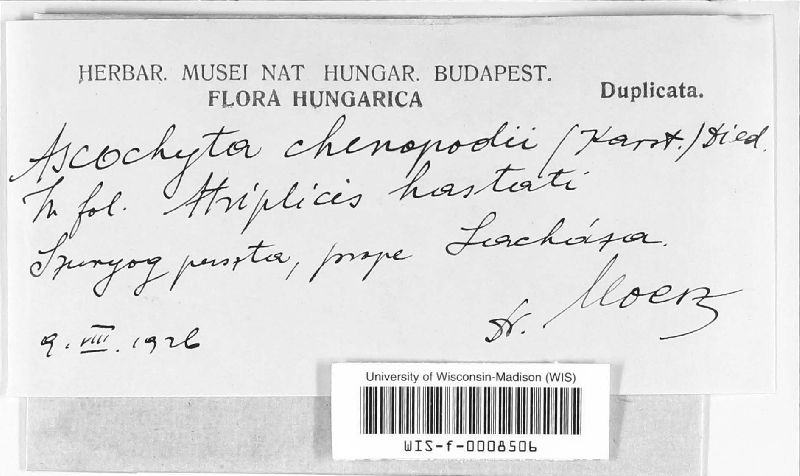 HERBAR. MUSEI NAT HUNGAR. BUDAPEST.
FLORA HUNGARICA
Duplicata.
Ascochyta chenopodii (Karst.) Died.
In fol. Atriplicis hastati
puszta, prope Laczháza.
Dr. Moesz
9. VIII. 1926
University of Wisconsin-Madison (WIS)
WIS-f-0008506